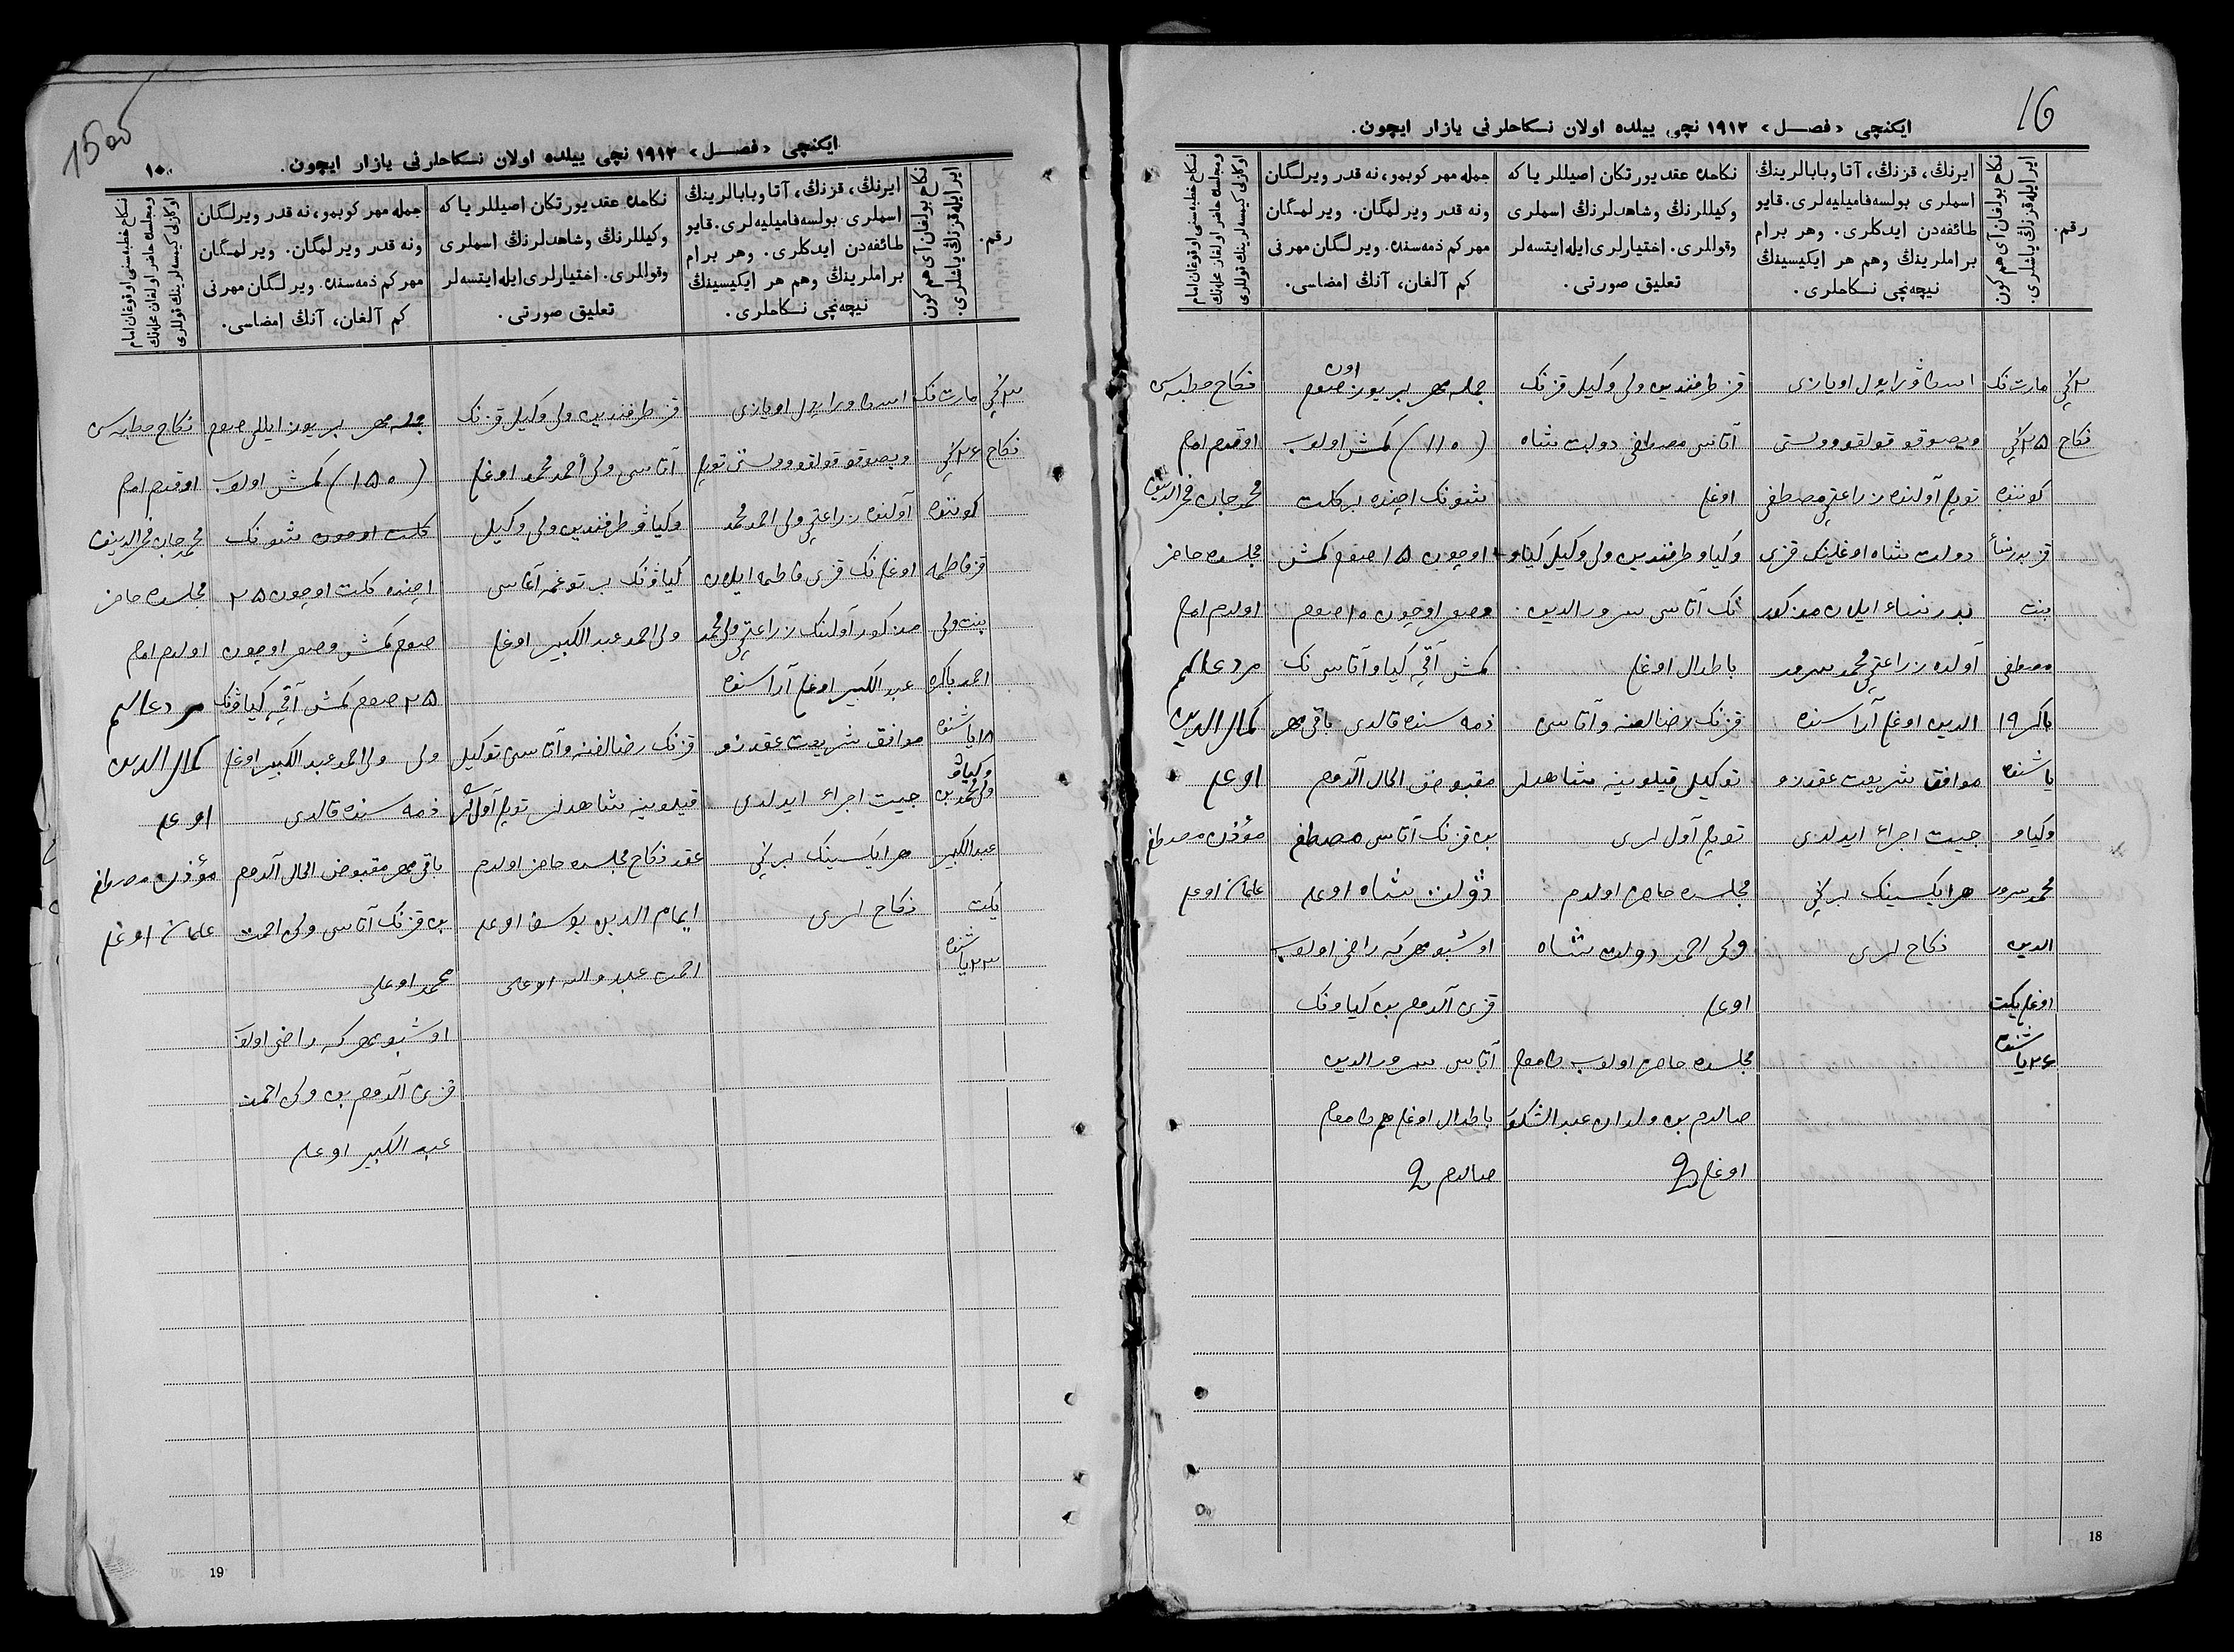 16
ایکنچی «فصل» ۱۹۱۲ نچی ییلده اولان نکاحلرنی یازار ایچون.
رقم.
ایر ایله قزنڭ یاشلری.
نکاح بولغان آی هم کون
ایرنڭ، قزنڭ، آتا وبابالرینڭ
اسملری بولسه فامیلیه‌لری. قایو
طائفه‌دن ایدکلری. وهر برام
براملرینڭ وهم هر ایکیسینڭ
نیچه‌نچی نکاحلری.
نکاحده عقد یورتکان اصیللر یا که
وکیللرنڭ وشاهدلرنڭ اسملری
وقوللری. اختیارلری ایله ایتسه‌لر
تعلیق صورتی.
جمله مهر کوبمو، نه قدر ویرلگان
ونه قدر ویرلمگان. ویرلمگان
مهر کم ذمه‌سنده. ویرلگان مهرنی
کم آلغان، آنڭ امضاسی.
نکاح خطبه‌سنی اوقوغان امام
ومجلسده حاضر اولغان محله‌نڭ
اوکازلی کیمسه‌لرینڭ قوللری
نکاح
مارت نک
۲۵ نچی
کوننده
قز بدرنساء
بنت
مصطفی
باکره ۱۹
یاشنده
وکیاو
محمد سرور
الدین
اوغلی یکت
۲۶ یاشنده
اویازی
وولستی
توبلی آولنده زراعتچی مصطفی
دولت شاه اوغلینک قزی
بدرنساء ایلان مذکور
آولده زراعتچی محمد سرور
الدین اوغلی آراسنده
موافق شریعت عقد نو
جیت اجراء ایدلدی
هر ایکسینک برنچی
نکاح لری
قز طرفندین ولی وکیل قزنک
آتاسی مصطفی دولت شاه
اوغلی
وکیاو طرفندین ولی وکیل کیاو
نک آتاسی سرور الدین
باطدال اوغلی
قزنک رضالغنه وآتاسی
توکیل قیلوینه شاهدلر
توبلی آول لری
مجلسده حاضر اولدم
ولی احمد دولت شاه
اوغلی
مجلسده حاضر اولوب طامغام
صالدم بن ولدان عبد الشکور
اوغلی
جمله مهر بر یوز اون صوم
(۱۱۰) کمش اولوب
شونک اچنده بر کلت
اوچون ۱۵ صوم کمش
وصیر اوچون ۱۰ صوم
کمش آقچه کیاو آتاسی نک
ذمه سنده قالدی باقی مهر
مقبوض الحال آلدوم
بن قزنک آتاسی مصطفی
دولت شاه اوغلی
اوشبو مهرکه راضی اولوب
قزی آلدوم بن کیاونک
آتاسی سرور الدین
باطدال اوغلی هم طامغام
صالدم
نکاح خطبه سی
اوقیدم امام
محمد جان فخرالدین
مجلسده حاضر
اولدم امام
کمال الدین
اوغلی
مؤذن مصطفی
علمان اوغلی
18
1500
۱۰
ایکنچی «فصل» ۱۹۱۲ نچی ییلده اولان نکاحلرنی یازار ایچون.
رقم.
ایر ایله قزنڭ یاشلری.
نکاح بولغان آی هم کون
ایرنڭ، قزنڭ، آتا وبابالرینڭ
اسملری بولسه فامیلیه‌لری. قایو
طائفه‌دن ایدکلری. وهر برام
براملرینڭ وهم هر ایکیسینڭ
نیچه‌نچی نکاحلری.
نکاحده عقد یورتکان اصیللر یا که
وکیللرنڭ وشاهدلرنڭ اسملری
وقوللری. اختیارلری ایله ایتسه‌لر
تعلیق صورتی.
جمله مهر کوبمو، نه قدر ویرلگان
ونه قدر ویرلمگان. ویرلمگان
مهر کم ذمه‌سنده. ویرلگان مهرنی
کم آلغان، آنڭ امضاسی.
نکاح خطبه‌سنی اوقوغان امام
ومجلسده حاضر اولغان محله‌نڭ
اوکازلی کیمسه‌لرینڭ قوللری
نکاح
مارت نک
۲۶ نچی
کوننده
قز فاطمه
بنت ولی
احمد باکره
۱۸ یاشنده
وکیاو
ولی محمد بن
عبد الکبیر
یکت
۲۲ یاشنده
اویازی
وولستی توبلی
آولنده زراعتچی ولی احمد محمد
اوغلی نک قزی فاطمه ایلان
مذکور آولنک زراعتچی ولی محمد
عبد الکبیر اوغلی آراسنده
موافق شریعت عقد نو
جیت اجراء ایدلدی
هر ایکسینک برنچی
نکاح لری
قز طرفندین ولی وکیل قزنک
آتاسی ولی أحمد محمد اوغلی
وکیاو طرفندین ولی وکیل
کیاونک بر توغمه آغاسی
ولی احمد عبد الکبیر اوغلی
قزنک رضالغنه وآتاسی توکیل
قیلوینه شاهدلر توبلی آول لری
عقد نکاح مجلسده حاضر اولدم
ایمام الدین یوسف اوغلی
احمت عبدوالله اوغلی
جمله مهر بر یوز ایللی صوم
(۱۵۰) کمش اولوب
کلت اوچون شونک
اچنده کلت اوچون ۲۵
صوم کمش وصیر اوچون
۲۵ صوم کمش آقچه کیاونک
ولی ولی احمد عبد الکبیر اوغلی
ذمه سنده قالدی
باقی مهر مقبوض الحال آلدوم
بن قزنک آتاسی ولی احمت
محمد اوغلی
اوشبو مهرکه راضی اولوب
قزی آلدوم بن ولی احمت
عبد الکبیر اوغلی
نکاح خطبه سی
اوقیدم امام
محمد جان فخرالدین
مجلسده حاضر
اولدم امام
کمال الدین
اوغلی
مؤذن مصطفی
علمان اوغلی
19